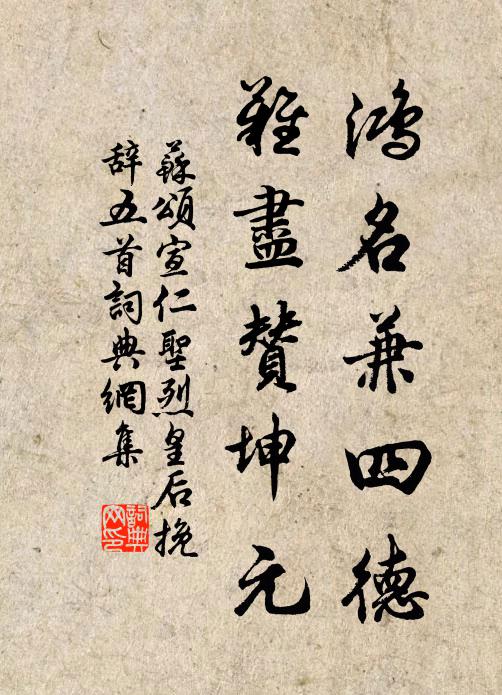 鴻名兼四德
難盡贊坤元
蘇頌宣仁聖烈皇后挽
辞五首詞典網集
詞典网印